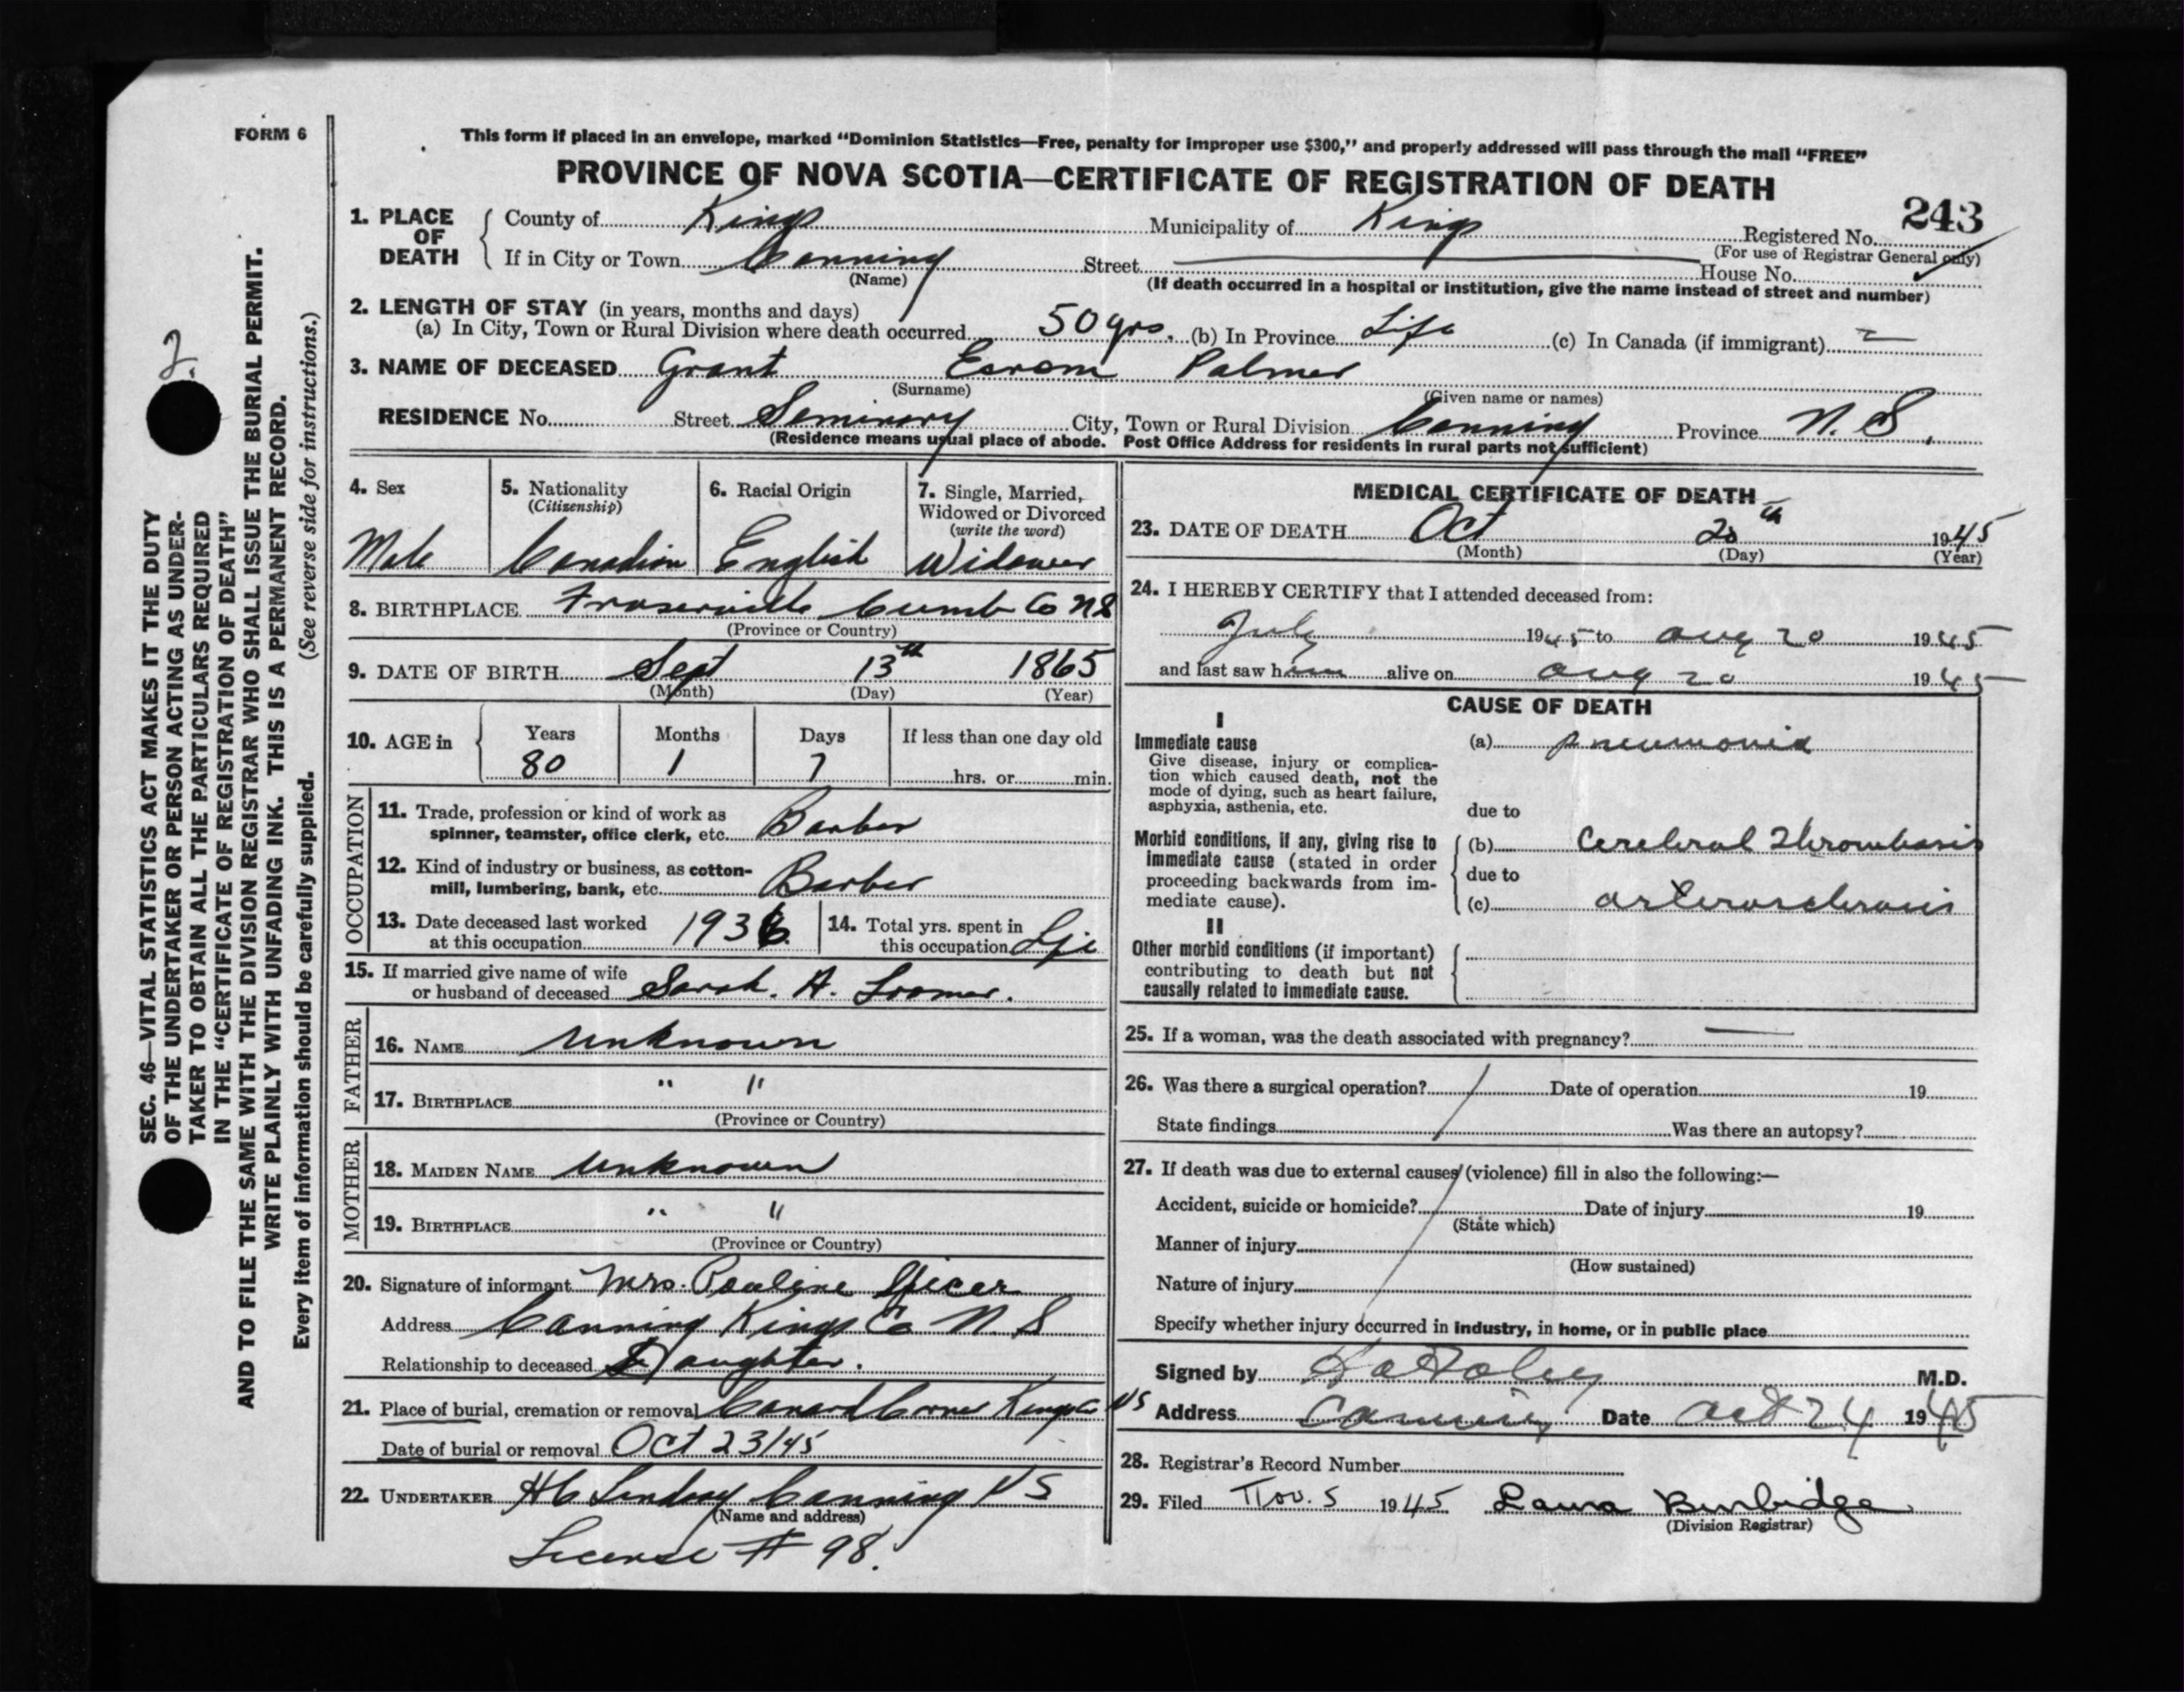 FORM 6
This form if placed in an envelope, marked "Dominion Statistics—Free, penalty for improper use $300," and properly addressed will pass through the mail "FREE"
PROVINCE OF NOVA SCOTIA—CERTIFICATE OF REGISTRATION OF DEATH
243
1. PLACE OF DEATH
County of Kings Municipality of Kings Registered No.
(For use of Registrar General only)
If in City or Town Canning Street House No.
(Name)
(If death occurred in a hospital or institution, give the name instead of street and number)
2. LENGTH OF STAY (in years, months and days)
(a) In City, Town or Rural Division where death occurred 50 yrs. (b) In Province Life (c) In Canada (if immigrant)
3. NAME OF DECEASED Grant Esrom Palmer
(Surname) (Given name or names)
RESIDENCE No. Street Seminary City, Town or Rural Division Canning Province N. S.
(Residence means usual place of abode. Post Office Address for residents in rural parts not sufficient)
4. Sex
Male
5. Nationality
(Citizenship)
Canadian
6. Racial Origin
English
7. Single, Married,
Widowed or Divorced
(write the word)
Widower
8. BIRTHPLACE Fraserville Cumb Co NS
(Province or Country)
9. DATE OF BIRTH Sept 13th 1865
(Month) (Day) (Year)
10. AGE in
Years Months Days If less than one day old
80 1 7 hrs. or min.
OCCUPATION
11. Trade, profession or kind of work as
spinner, teamster, office clerk, etc. Barber
12. Kind of industry or business, as cotton-
mill, lumbering, bank, etc. Barber
13. Date deceased last worked
at this occupation 1936
14. Total yrs. spent in
this occupation Life
15. If married give name of wife
or husband of deceased Sarah. A. Loomer.
FATHER
16. NAME Unknown
17. BIRTHPLACE " "
(Province or Country)
MOTHER
18. MAIDEN NAME Unknown
19. BIRTHPLACE " "
(Province or Country)
20. Signature of informant Mrs. Pauline Spicer
Address Canning Kings Co N. S
Relationship to deceased Daughter.
21. Place of burial, cremation or removal Canard Corner Kings Co. NS
Date of burial or removal Oct 23/45
22. UNDERTAKER HC Lindsay Canning NS
(Name and address)
License # 98.
MEDICAL CERTIFICATE OF DEATH
23. DATE OF DEATH Oct 20th 1945
(Month) (Day) (Year)
24. I HEREBY CERTIFY that I attended deceased from:
July 1945 to Aug 20 1945
and last saw him alive on Aug 20 1945
CAUSE OF DEATH
I
Immediate cause
Give disease, injury or complica-
tion which caused death, not the
mode of dying, such as heart failure,
asphyxia, asthenia, etc.
(a) pneumonia
due to
Morbid conditions, if any, giving rise to
immediate cause (stated in order
proceeding backwards from im-
mediate cause).
(b) Cerebral Thrombosis
due to
(c) arterosclerosis
II
Other morbid conditions (if important)
contributing to death but not
causally related to immediate cause.
25. If a woman, was the death associated with pregnancy?
26. Was there a surgical operation? Date of operation 19
State findings Was there an autopsy?
27. If death was due to external causes (violence) fill in also the following:—
Accident, suicide or homicide? Date of injury 19
(State which)
Manner of injury
(How sustained)
Nature of injury
Specify whether injury occurred in industry, in home, or in public place
Signed by M.D.
Address Canning Date Oct 24 1945
28. Registrar's Record Number
29. Filed Nov. 5 1945 Laura Burbidge
(Division Registrar)
2.
SEC. 46—VITAL STATISTICS ACT MAKES IT THE DUTY
OF THE UNDERTAKER OR PERSON ACTING AS UNDER-
TAKER TO OBTAIN ALL THE PARTICULARS REQUIRED
IN THE "CERTIFICATE OF REGISTRATION OF DEATH"
AND TO FILE THE SAME WITH THE DIVISION REGISTRAR WHO SHALL ISSUE THE BURIAL PERMIT.
WRITE PLAINLY WITH UNFADING INK. THIS IS A PERMANENT RECORD.
Every item of information should be carefully supplied. (See reverse side for instructions.)